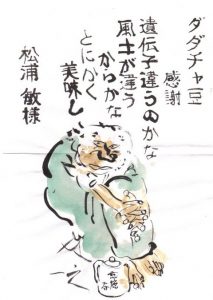 ダダチャ豆
感謝
遺伝子違うのかな
風土が違う
からかな
とにかく
美味しい
松浦敏様